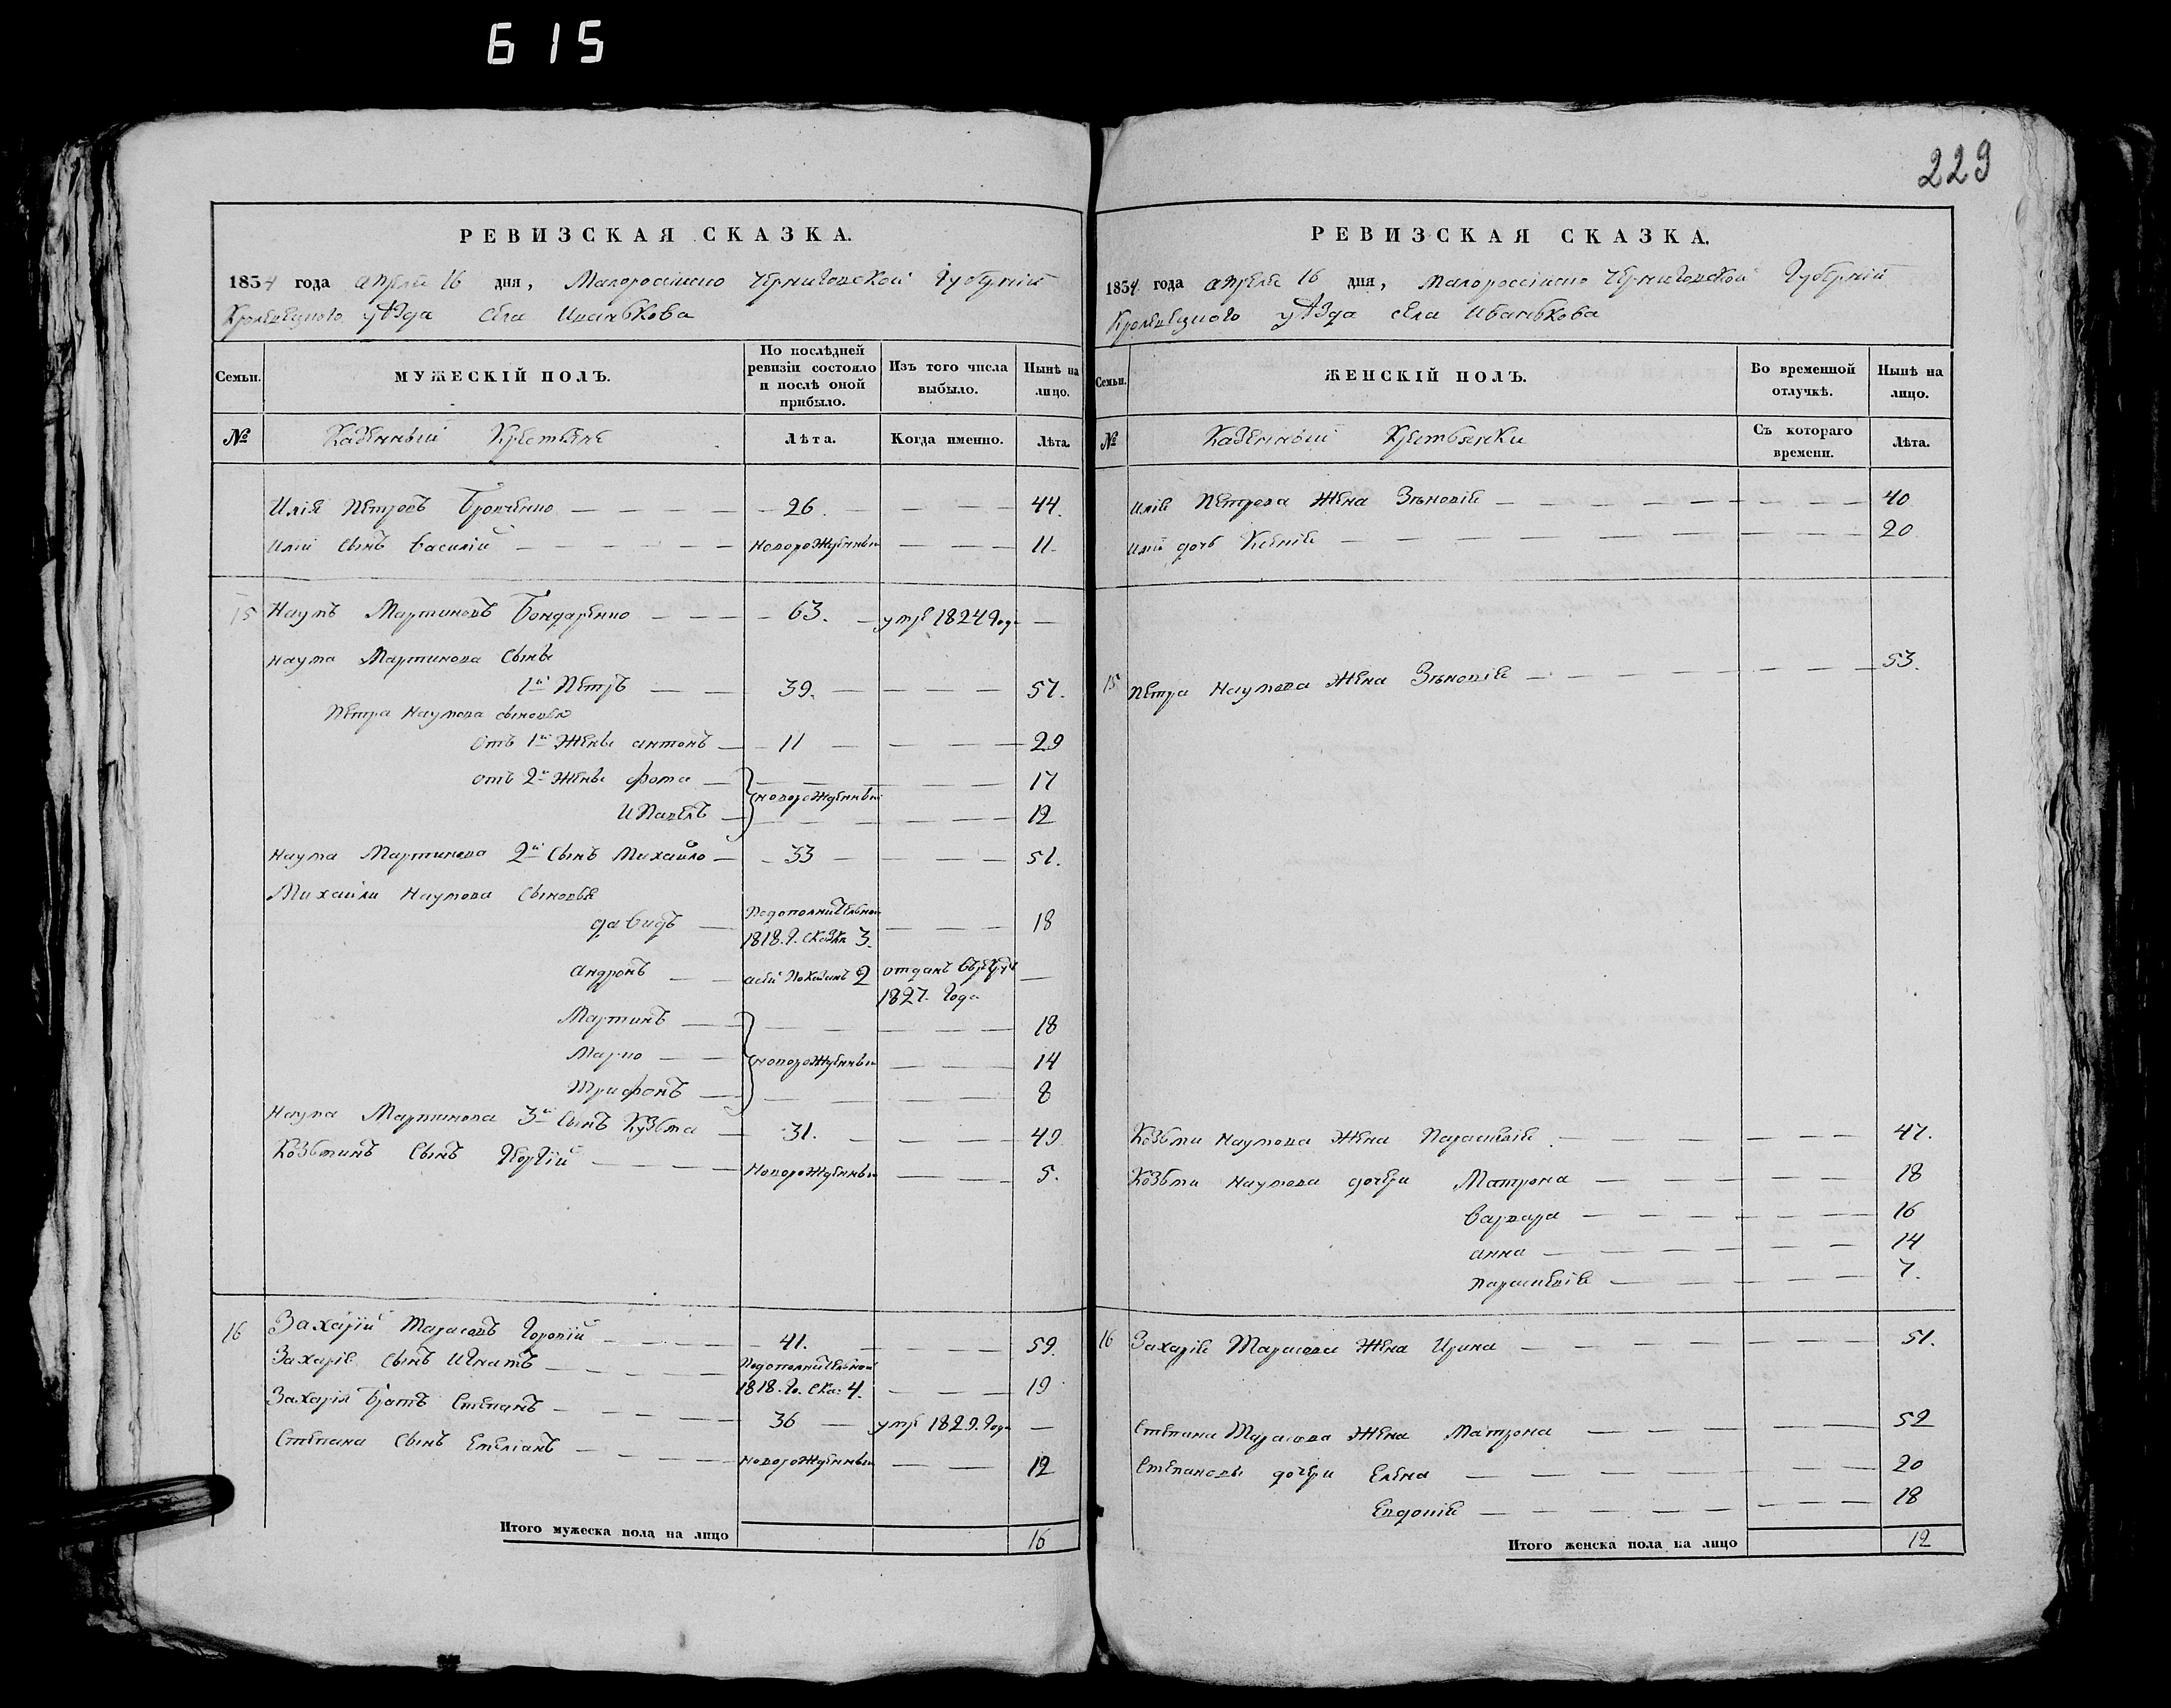 615
229
РЕВИЗСКАЯ СКАЗКА.
1834 года апреля 16 дня, Малороссійско Черниговской Губерній
Кролевецкого уѣзда села Иванькова
Семьи.
МУЖЕСКІЙ ПОЛЪ.
По послѣдней ревизіи состояло и послѣ оной прибыло.
Изъ того числа выбыло.
Нынѣ на лицо.
№
Казенный Крестьяне
Лѣта.
Когда именно.
Лѣта.
Илія Петровъ — 26. — 44.
Иліи сынъ Василій — новорожденный — 11.
15 Наумъ Мартиновъ Бондаренко — 63. — умре 1824 Года —
Наума Мартинова сыны
1й Петръ — 39. — 57.
Петра Наумова сыновья
отъ 1й жены антонъ — 11 — 29
отъ 2й жены фома — 17
новорожденный
и Павелъ — 12
Наума Мартинова 2й сынъ Михайло — 33 — 51.
Михайли Наумова сыновья
давидъ — Подополнительной 1818. Г. сказки 3. — 18
андронъ — 2 отданъ 1827. Года —
Мартинъ — 18
Марко — новорожденный — 14
Трифонъ — 8
Наума Мартинова 3й сынъ Кузьма — 31. — 49
Козьминъ сынъ Георгій — новорожденный — 5.
16 Захарій Тарасовъ — 41. — 59.
Захарія сынъ Игнатъ — Подополнительной 1818. Го. ска: 4. — 19
Захарія братъ Степанъ — 36 — умре 1829. Года —
Степана сынъ Емеліанъ — новорожденный — 12
Итого мужеска пола на лицо 16
РЕВИЗСКАЯ СКАЗКА.
1834 года апреля 16 дня, Малороссійско Черниговской Губерній
Кролевецкого уѣзда села Иванькова
Семьи.
ЖЕНСКІЙ ПОЛЪ.
Во временной отлучкѣ.
Нынѣ на лицо.
№
Казенный Крестьянки
Съ котораго времени.
Лѣта.
Иліе Петрова жена Зѣновіе — 40
Иліи дочь Ксеніе — 20
15 Петра Наумова жена Зѣновіе — 53.
Козьми Наумова жена Парасковіе — 47.
Козьми Наумова дочери Матрона — 18
Варвара — 16
анна — 14
Парасковіе — 7.
16 Захаріе Тарасова жена Ирина — 51.
Степана Тарасова жена Матрона — 52
Степановы дочери Елена — 20
Евдокіе — 18
Итого женска пола на лицо 12